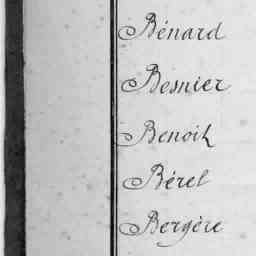 Bénard
Besnier
Benoit
Bérel
Bergère